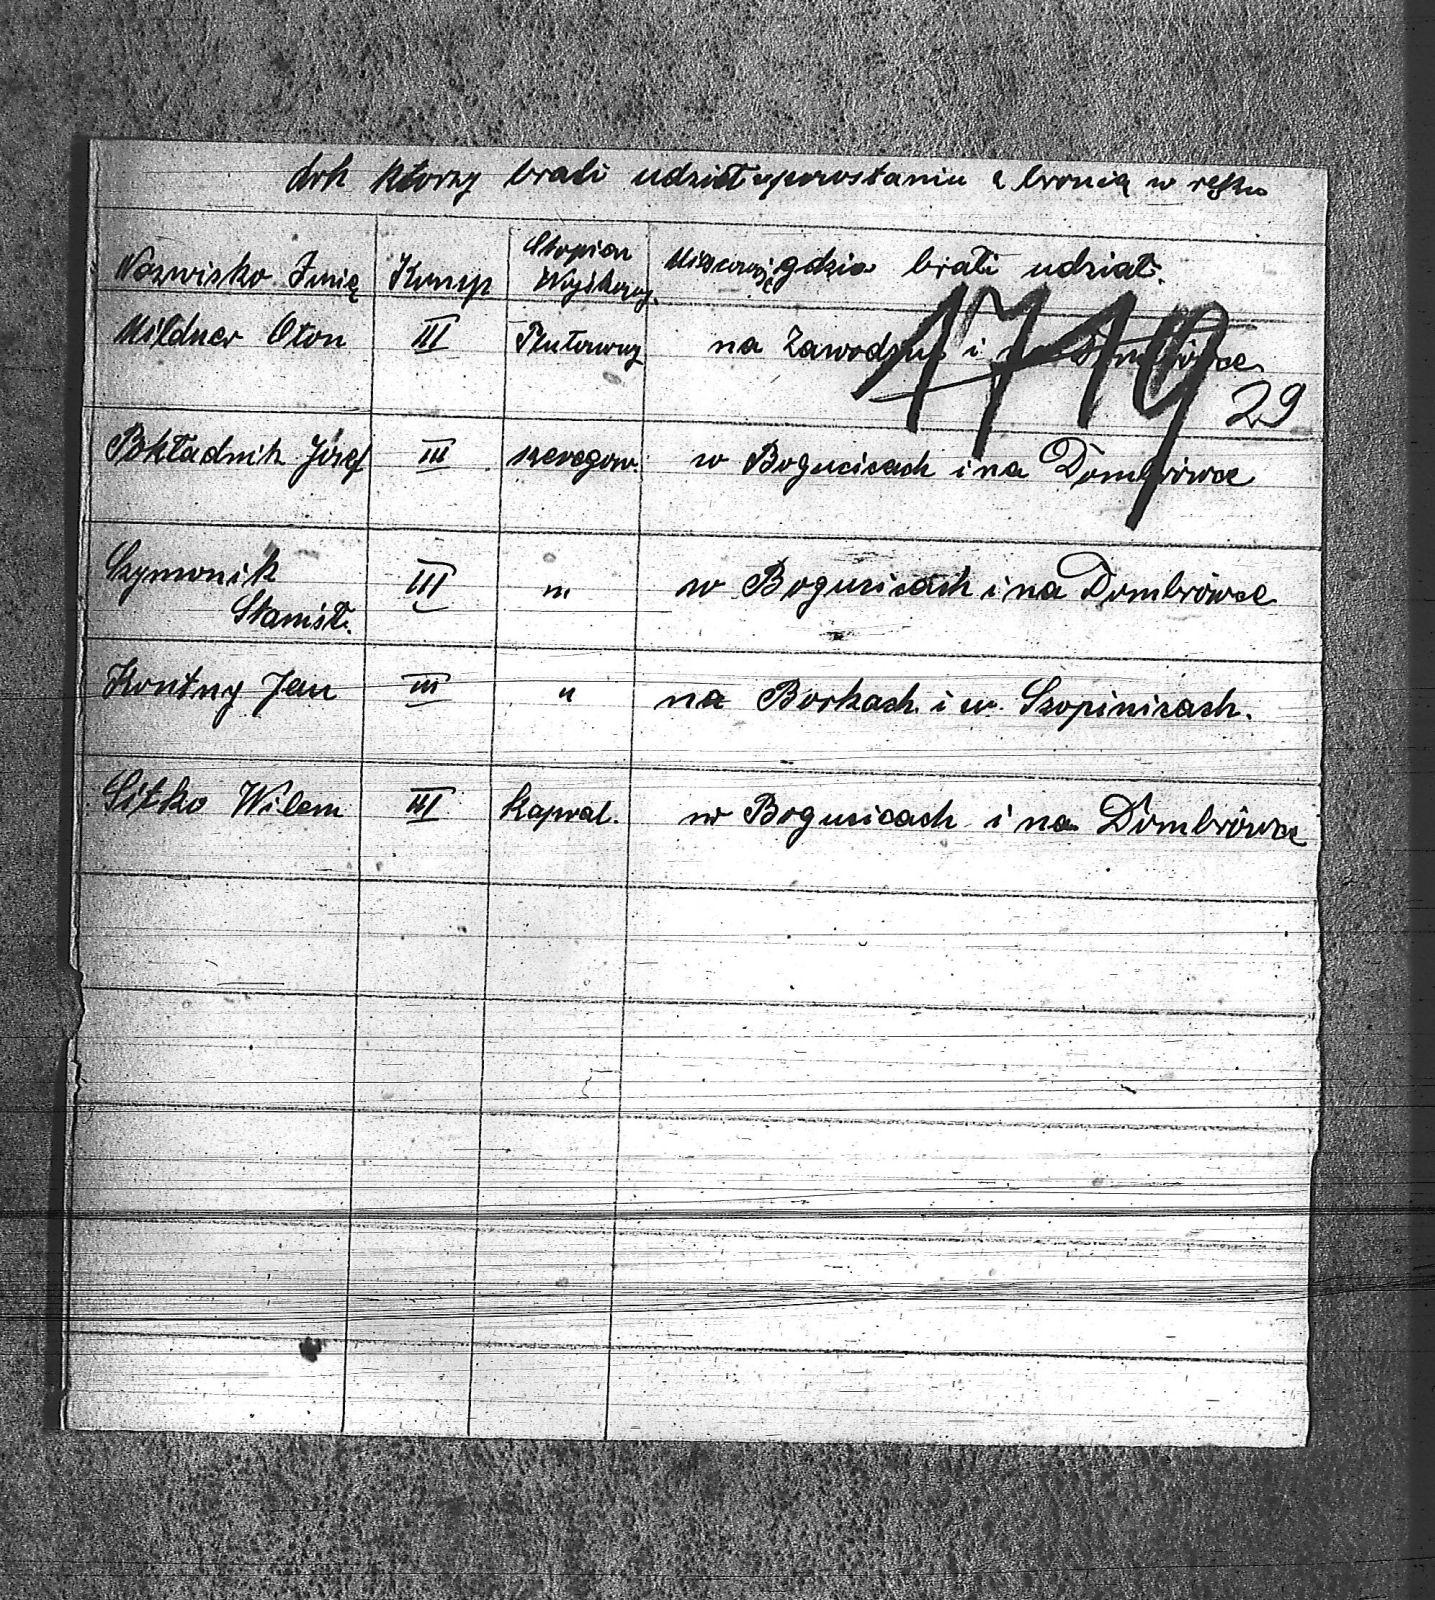 drh ktorzy brali udział w powstaniu z bronią w ręku
Nazwisko Imię Komp Stopian Wojskowy. Miescowość gdzie brali udział.
1719
Mildner Oton III Plutonowy na Zawodziu i na Dombrówce
29
Pokładnik Józef III szeregow. w Bogucicach i na Dombrówce
Szymonik III " w Bogucicach i na Dombrówce
Stanisł.
Kontny Jan III " na Borkach. i w. Szopinicach.
Sitko Wilem III kapral. w Bogucicach i na Dombrówce